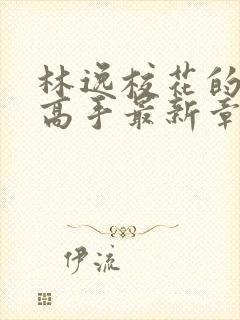 林逸校花的
高手最新章
伊流